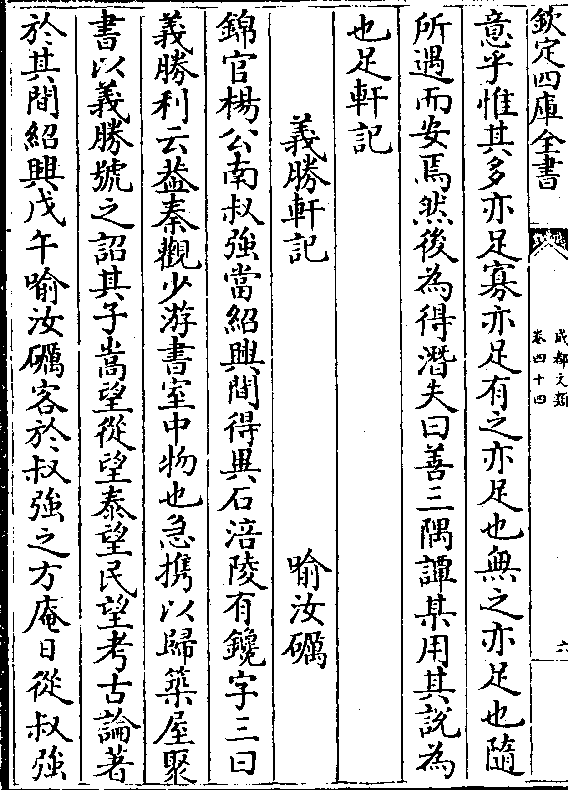 欽定四庫全書
成都文類
卷四十四
六
意乎惟其多亦足寡亦足有之亦足也無之亦足也隨
所遇而安焉然後為得潛夫曰善三隅譚某用其說為
也足軒記
義勝軒記
喻汝礪
錦官楊公南叔強當紹興間得異石涪陵有鑱字三曰
義勝利云葢秦觀少游書室中物也急携以歸築屋聚
書以義勝號之詔其子嵩望從望泰望民望考古論著
於其間紹興戊午喻汝礪客於叔強之方庵日從叔強